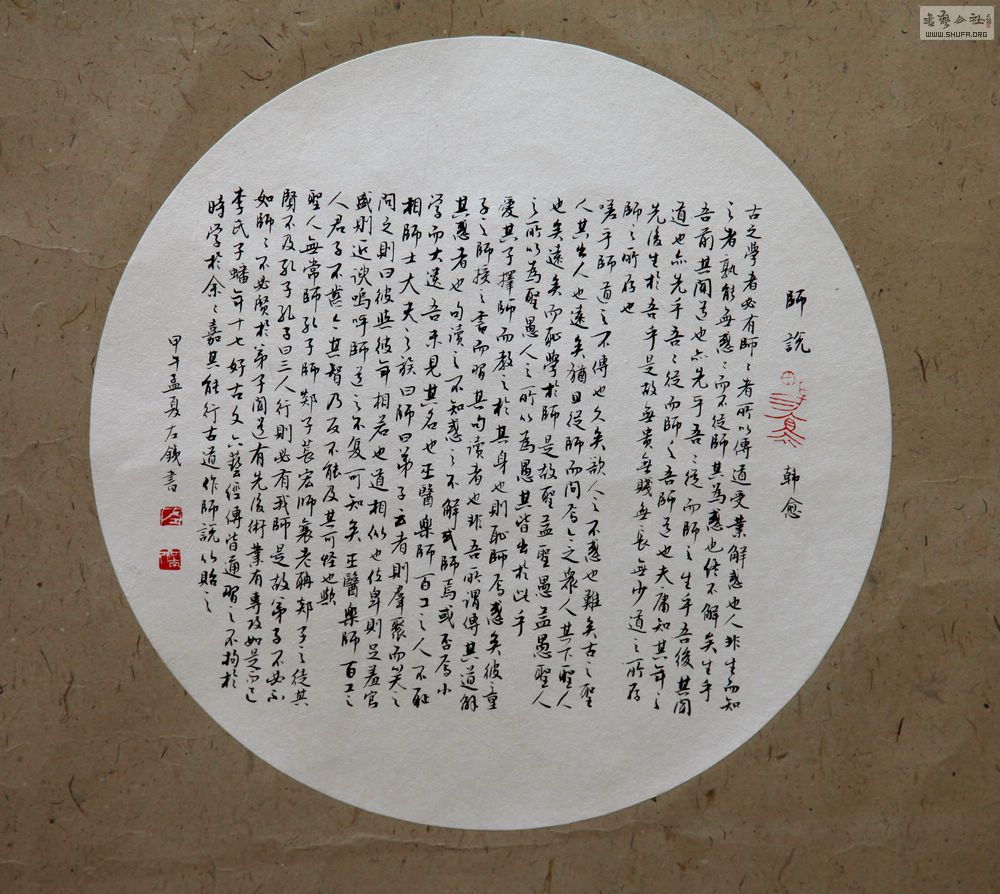 師說 韓愈
古之學者必有師々者所以傳道受業解惑也人非生而知
之者孰能無惑々而不從師其為惑也终不解矣生乎
吾前其聞道也亦先乎吾々從而師之生乎吾後其聞
道也亦先乎吾々從而師之吾師道也夫庸知其年之
先後生於吾乎是故無貴無賤無長無少道之所存
師之所存也
嗟乎師道之不傳也久矣欲人之不惑也難矣古之聖
人其出人也遠矣猶且從師而問焉今之眾人其下聖人
也矣遠矣而恥學於師是故聖益聖愚益愚聖人
之所以為聖愚人之所以為愚其皆出於此乎
愛其子擇師而教之於其身也則恥師焉惑矣彼童
子之師授之書而習其句讀者也非吾所謂傳其道解
其惑者也句讀之不知惑之不解或師焉或否焉小
學而大遺吾未見其名也巫醫樂師百工之人不恥
相師士大夫之族曰師曰弟子云者則羣聚而笑之
問之則曰彼與彼年相若也道相似也位卑則足羞官
盛則近諛嗚呼師道之不复可知矣巫醫樂師百工之
人君子不齒今其智乃反不能及其可怪也歟
聖人無常師孔子師郯子萇宏師襄老聃郯子之徒其
賢不及孔子孔子曰三人行則必有我師是故弟子不必不
如師々不必賢於弟子聞道有先後術業有專攻如是而已
李氏子蟠年十七好古文六藝經傳皆通習之不拘於
時學於余々嘉其能行古道作師說以貽之
甲午孟夏左錢書
書藝公社
WWW.SHUFA.ORG